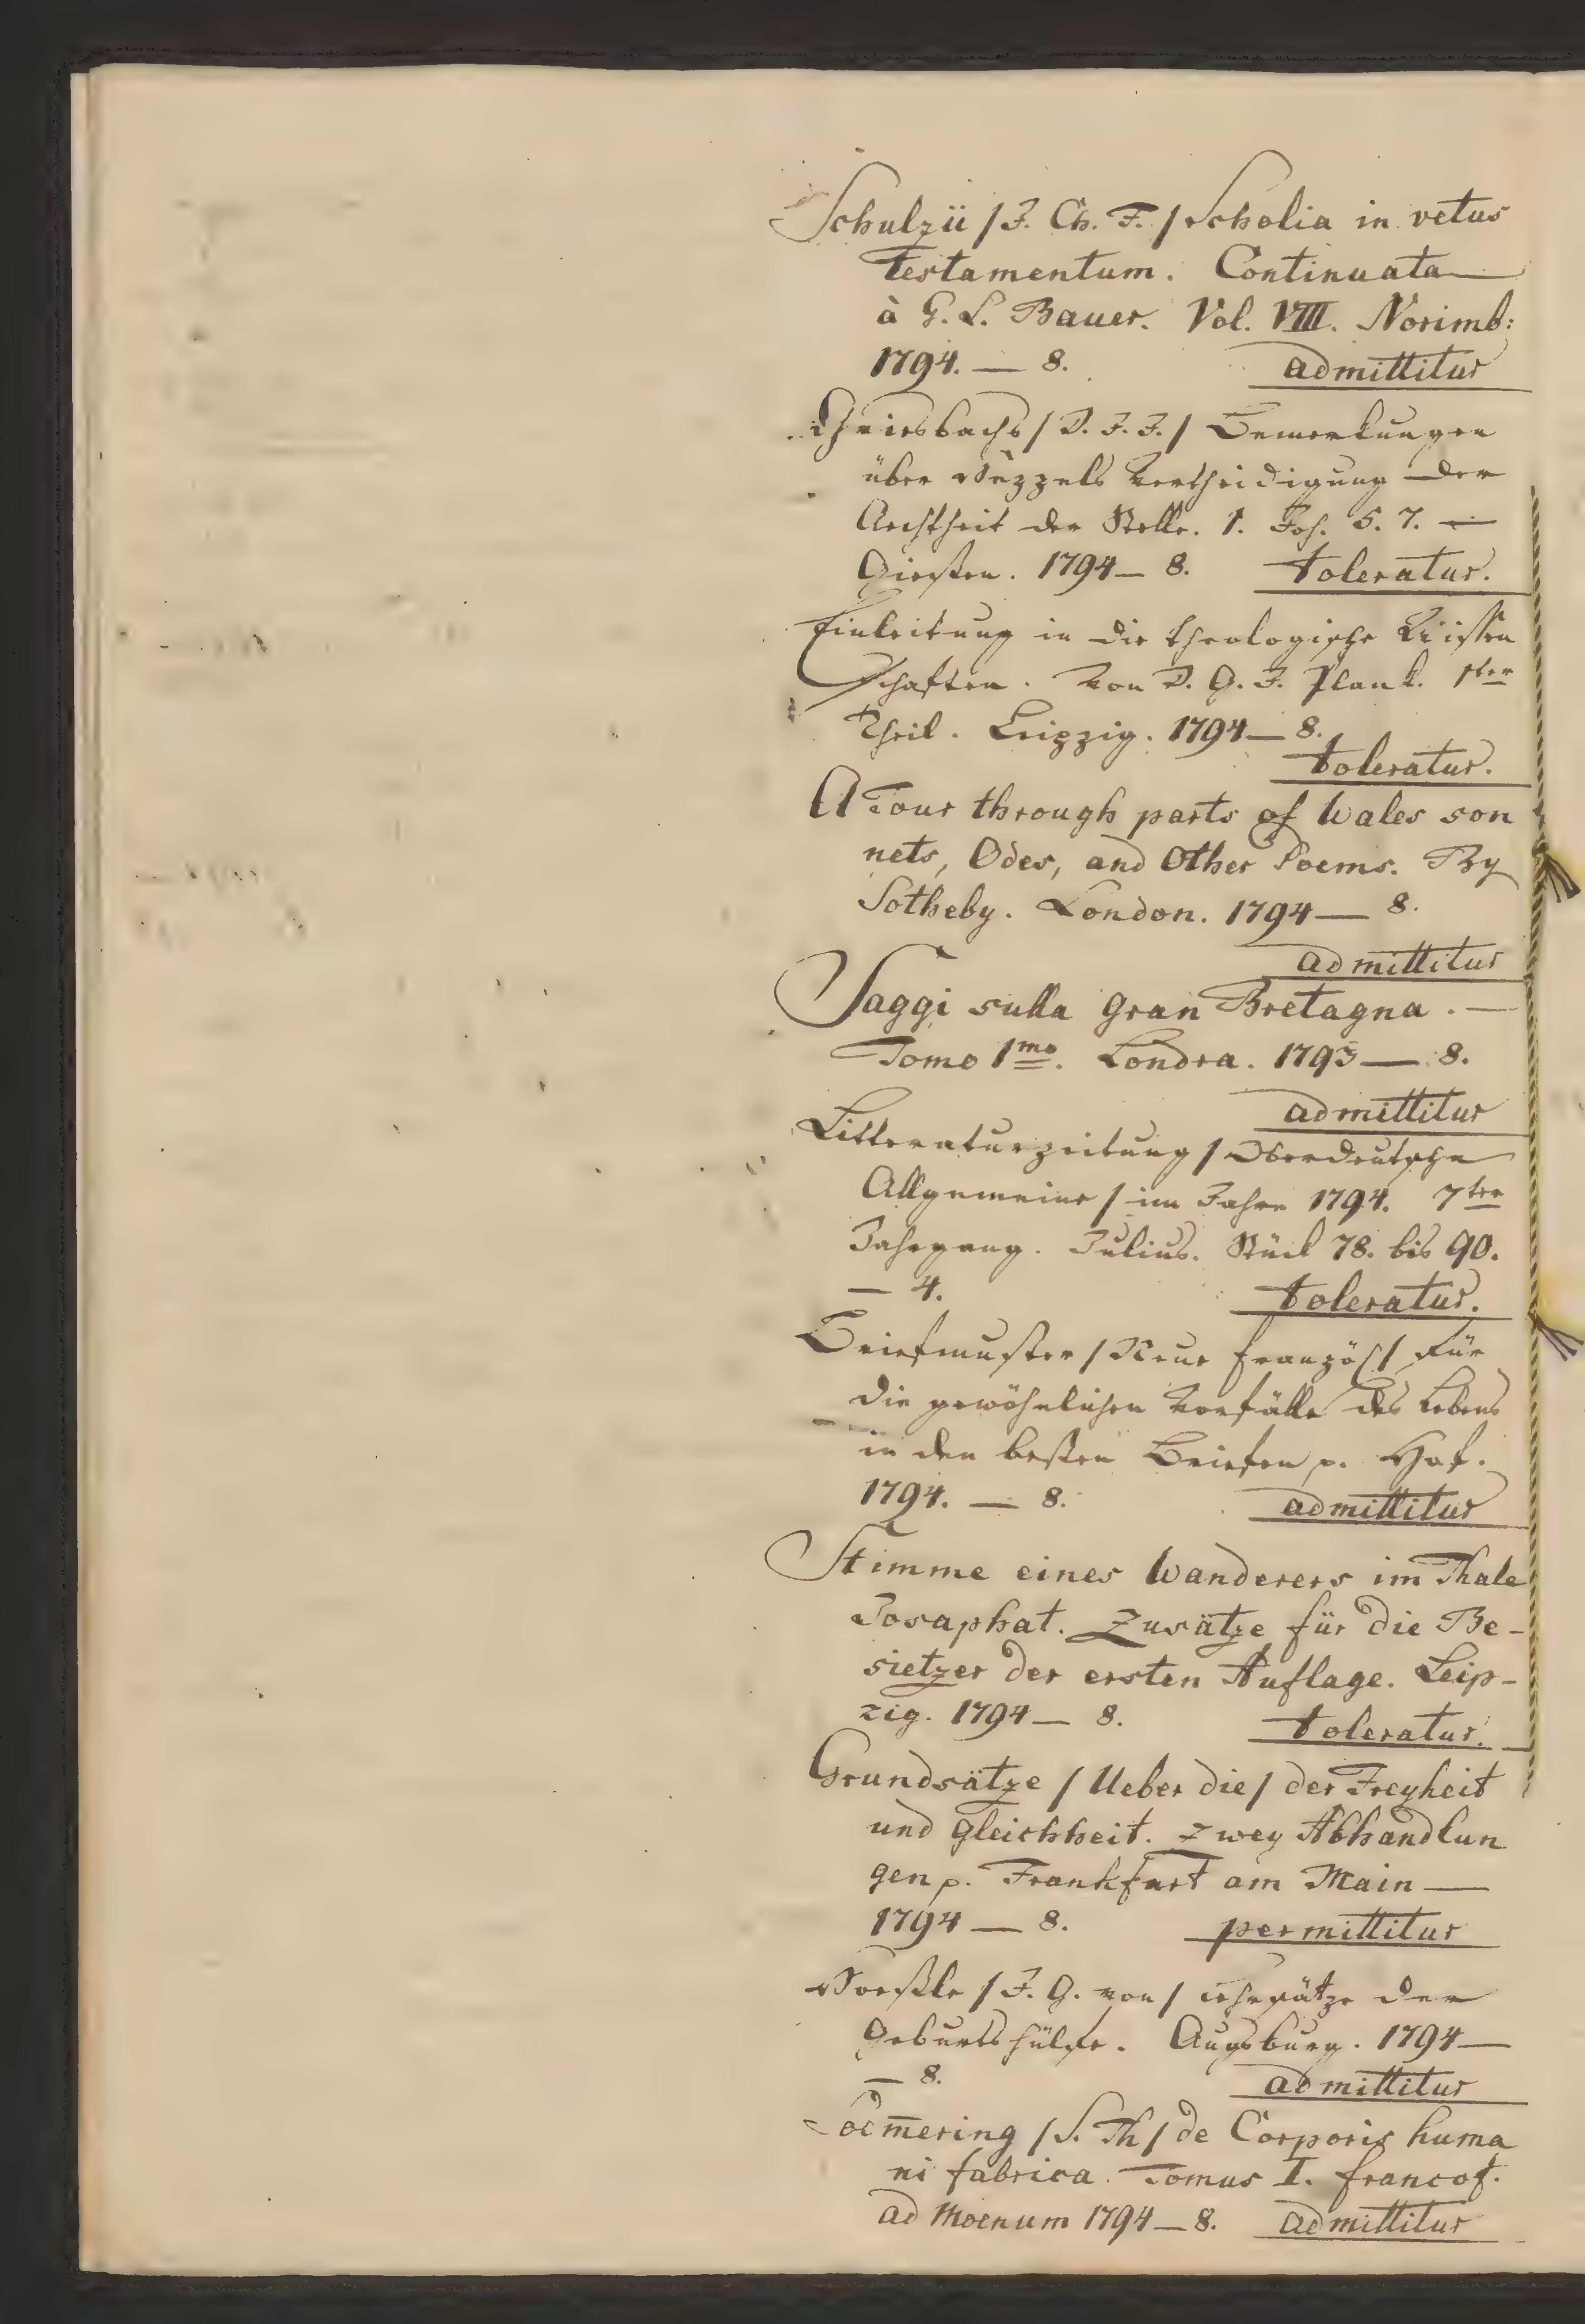 Schulzii /J. Ch. F./ Scholia in vetus
Testamentum. Continuata
à G. L. Bauer. Vol. VIII. Norimb:
1794. — 8. admittitur
Griesbachs /D. J. J./ Bemerkungen
über Hezzels Vertheidigung der
Aechtheit der Stelle. 1. Joh. 5. 7. —
Giessen. 1794 — 8. toleratur.
Einleitung in die theologische Wissen
schaften. Von D. G. J. Plank. 1ter
Theil. Leipzig. 1794 — 8.
toleratur.
A Tour through parts of Wales son
nets, Odes, and Other Poems. By
Sotheby. London. 1794 — 8.
admittitur
Saggi sulla Gran Bretagna. —
Tomo 1mo. Londra. 1793 — 8.
admittitur
Litteraturzeitung /Oberdeutsche
Allgemeine/ im Jahre 1794. 7ter
Jahrgang. Julius. Stück 78. bis 90.
— 4. toleratur.
Briefmuster /Neue französ/ für
die gewöhnlichen Vorfälle des Lebens
in den besten Briefen p. Hof.
1794. — 8. admittitur
Stimme eines Wanderers im Thale
Josaphat. Zusätze für die Be-
sietzer der ersten Auflage. Leip-
zig. 1794 — 8. toleratur.
Grundsätze /Ueber die/ der Freyheit
und Gleichheit. Zwey Abhandlun
gen p. Frankfurt am Main —
1794 — 8. permittitur
/J. G. von/ Lehrsätze der
Geburtshülfe. Augsburg. 1794 —
— 8. admittitur
Soem̄ering /S. Th/ de Corporis huma
ni fabrica. Tomus I. francof.
ad Moenum 1794 — 8. admittitur